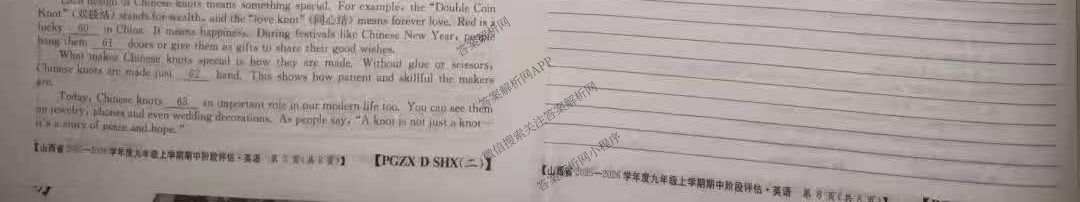 Each design of Chinese knots means something special. For example, the "Double Coin
Knot" (双钱结) stands for wealth, and the "love knot" (同心结) means forever love. Red is a
lucky 60 in China. It means happiness. During festivals like Chinese New Year, people
hang them 61 doors or give them as gifts to share their good wishes.
What makes Chinese knots special is how they are made. Without glue or scissors,
Chinese knots are made just 62 hand. This shows how patient and skillful the makers
are.
Today, Chinese knots 63 an important role in our modern life too. You can see them
on jewelry, phones and even wedding decorations. As people say, "A knot is not just a knot—
it's a story of peace and hope."
【山西省2025—2026学年度九年级上学期期中阶段评估·英语 第 页(共8页)】 【PGZX D SHX(二)】
答案解析网
答案解析网APP
微信搜索关注答案解析网
答案解析网小程序
【山西省2025—2026学年度九年级上学期期中阶段评估·英语 第8页(共8页)】